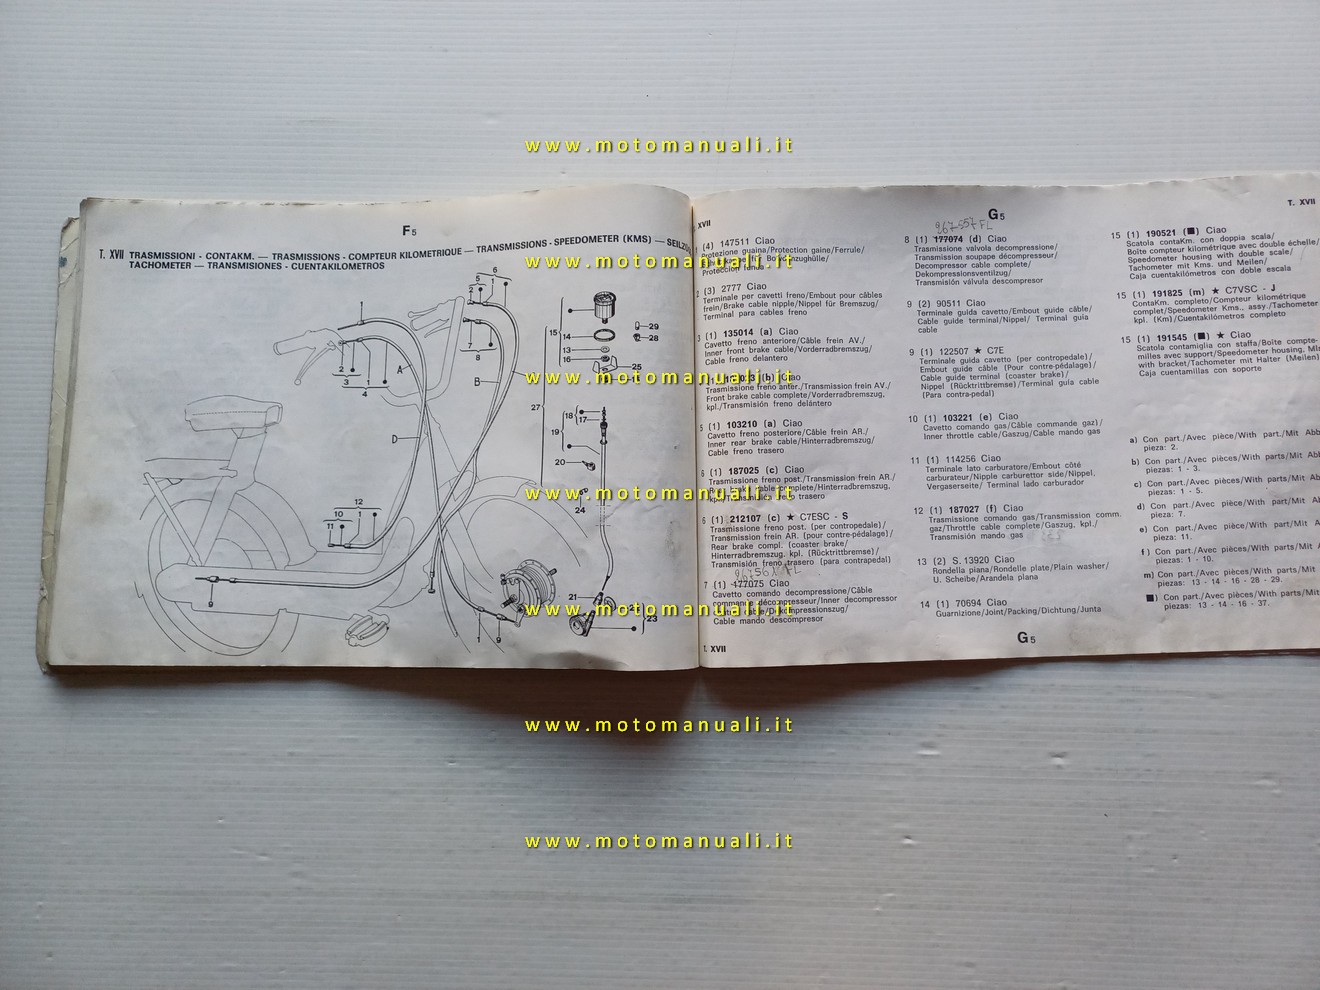 www.motomanuali.it
F5
T. XVII TRASMISSIONI - CONTAKM. — TRASMISSIONS - COMPTEUR KILOMETRIQUE — TRANSMISSIONS - SPEEDOMETER (KMS) — SEILZÜ
TACHOMETER — TRANSMISIONES - CUENTAKILOMETROS
www.motomanuali.it
XVII
G5
T. XVII
(4) 147511 Ciao
Protezione guaina/Protection gaine/Ferrule/
(3) 2777 Ciao
Terminale per cavetti freno/Embout pour câbles
frein/Brake cable nipple/Nippel für Bremszug/
Terminal para cables freno
(1) 135014 (a) Ciao
Cavetto freno anteriore/Câble frein AV./
Inner front brake cable/Vorderradbremszug/
Cable freno delantero
(b) Ciao
Trasmissione freno anter./Transmission frein AV./
Front brake cable complete/Vorderradbremszug,
kpl./Transmisión freno delántero
www.motomanuali.it
5 (1) 103210 (a) Ciao
Cavetto freno posteriore/Câble frein AR./
Inner rear brake cable/Hinterradbremszug/
Cable freno trasero
6 (1) 187025 (c) Ciao
Trasmissione freno post./Transmission frein AR./
brake cable complete/Hinterradbremszug,
www.motomanuali.it
6 (1) 212107 (c) ★ C7ESC - S
Trasmissione freno post. (per contropedale)/
Transmission frein AR. (pour contre-pédalage)/
Rear brake compl. (coaster brake)/
Hinterradbremszug. kpl. (Rücktrittbremse)/
Transmisión freno trasero (para contrapedal)
7 (1) 177075 Ciao
Cavetto comando decompressione/Câble
commande décompresseur/Inner decompressor
Cable mando descompresor
www.motomanuali.it
T. XVII
8 (1) 177074 (d) Ciao
Trasmissione valvola decompressione/
Transmission soupape décompresseur/
Decompressor cable complete/
Dekompressionsventilzug/
Transmisión válvula descompresor
9 (2) 90511 Ciao
Terminale guida cavetto/Embout guide câble/
Cable guide terminal/Nippel/ Terminal guia
cable
9 (1) 122507 ★ C7E
Terminale guida cavetto (per contropedale)/
Embout guide câble (Pour contre-pédalage)/
Cable guide terminal (coaster brake)/
Nippel (Rücktrittbremse)/Terminal guia cable
(Para contra-pedal)
10 (1) 103221 (e) Ciao
Cavetto comando gas/Câble commande gaz)/
Inner throttle cable/Gaszug/Cable mando gas
11 (1) 114256 Ciao
Terminale lato carburatore/Embout côté
carburateur/Nipple carburettor side/Nippel,
Vergaserseite/ Terminal lado carburador
12 (1) 187027 (f) Ciao
Trasmissione comando gas/Transmission comm.
gaz/Throttle cable complete/Gaszug, kpl./
Transmisión mando gas
13 (2) S. 13920 Ciao
Rondella piana/Rondelle plate/Plain washer/
U. Scheibe/Arandela plana
14 (1) 70694 Ciao
Guarnizione/Joint/Packing/Dichtung/Junta
G5
15 (1) 190521 (■) Ciao
Scatola contaKm. con doppia scala/
Boîte compteur kilométrique avec double échelle/
Speedometer housing with double scale/
Tachometer mit Kms. und Meilen/
Caja cuentakilómetros con doble escala
15 (1) 191825 (m) ★ C7VSC - J
ContaKm. completo/Compteur kilométrique
complet/Speedometer Kms., assy./Tachometer
kpl. (Km)/Cuentakilómetros completo
15 (1) 191545 (■) ★ Ciao
Scatola contamiglia con staffa/Boîte compte-
milles avec support/Speedometer housing, Mls
with bracket/Tachometer mit Halter (Meilen)
Caja cuentamillas con soporte
a) Con part./Avec pièce/With part./Mit Abb
pieza: 2.
b) Con part./Avec pièces/With parts/Mit Abb
piezas: 1 - 3.
c) Con part./Avec pièces/With parts/Mit Abb
piezas: 1 - 5.
d) Con part./Avec pièce/With part/Mit Ab
pieza: 7.
e) Con part./Avec pièce/With part/Mit A
pieza: 11.
f) Con part./Avec pièces/With parts/Mit A
piezas: 1 - 10.
m) Con part./Avec pièces/With parts/Mit
piezas: 13 - 14 - 16 - 28 - 29.
■) Con part./Avec pièces/With parts/Mit
piezas: 13 - 14 - 16 - 37.
www.motomanuali.it
www.motomanuali.it